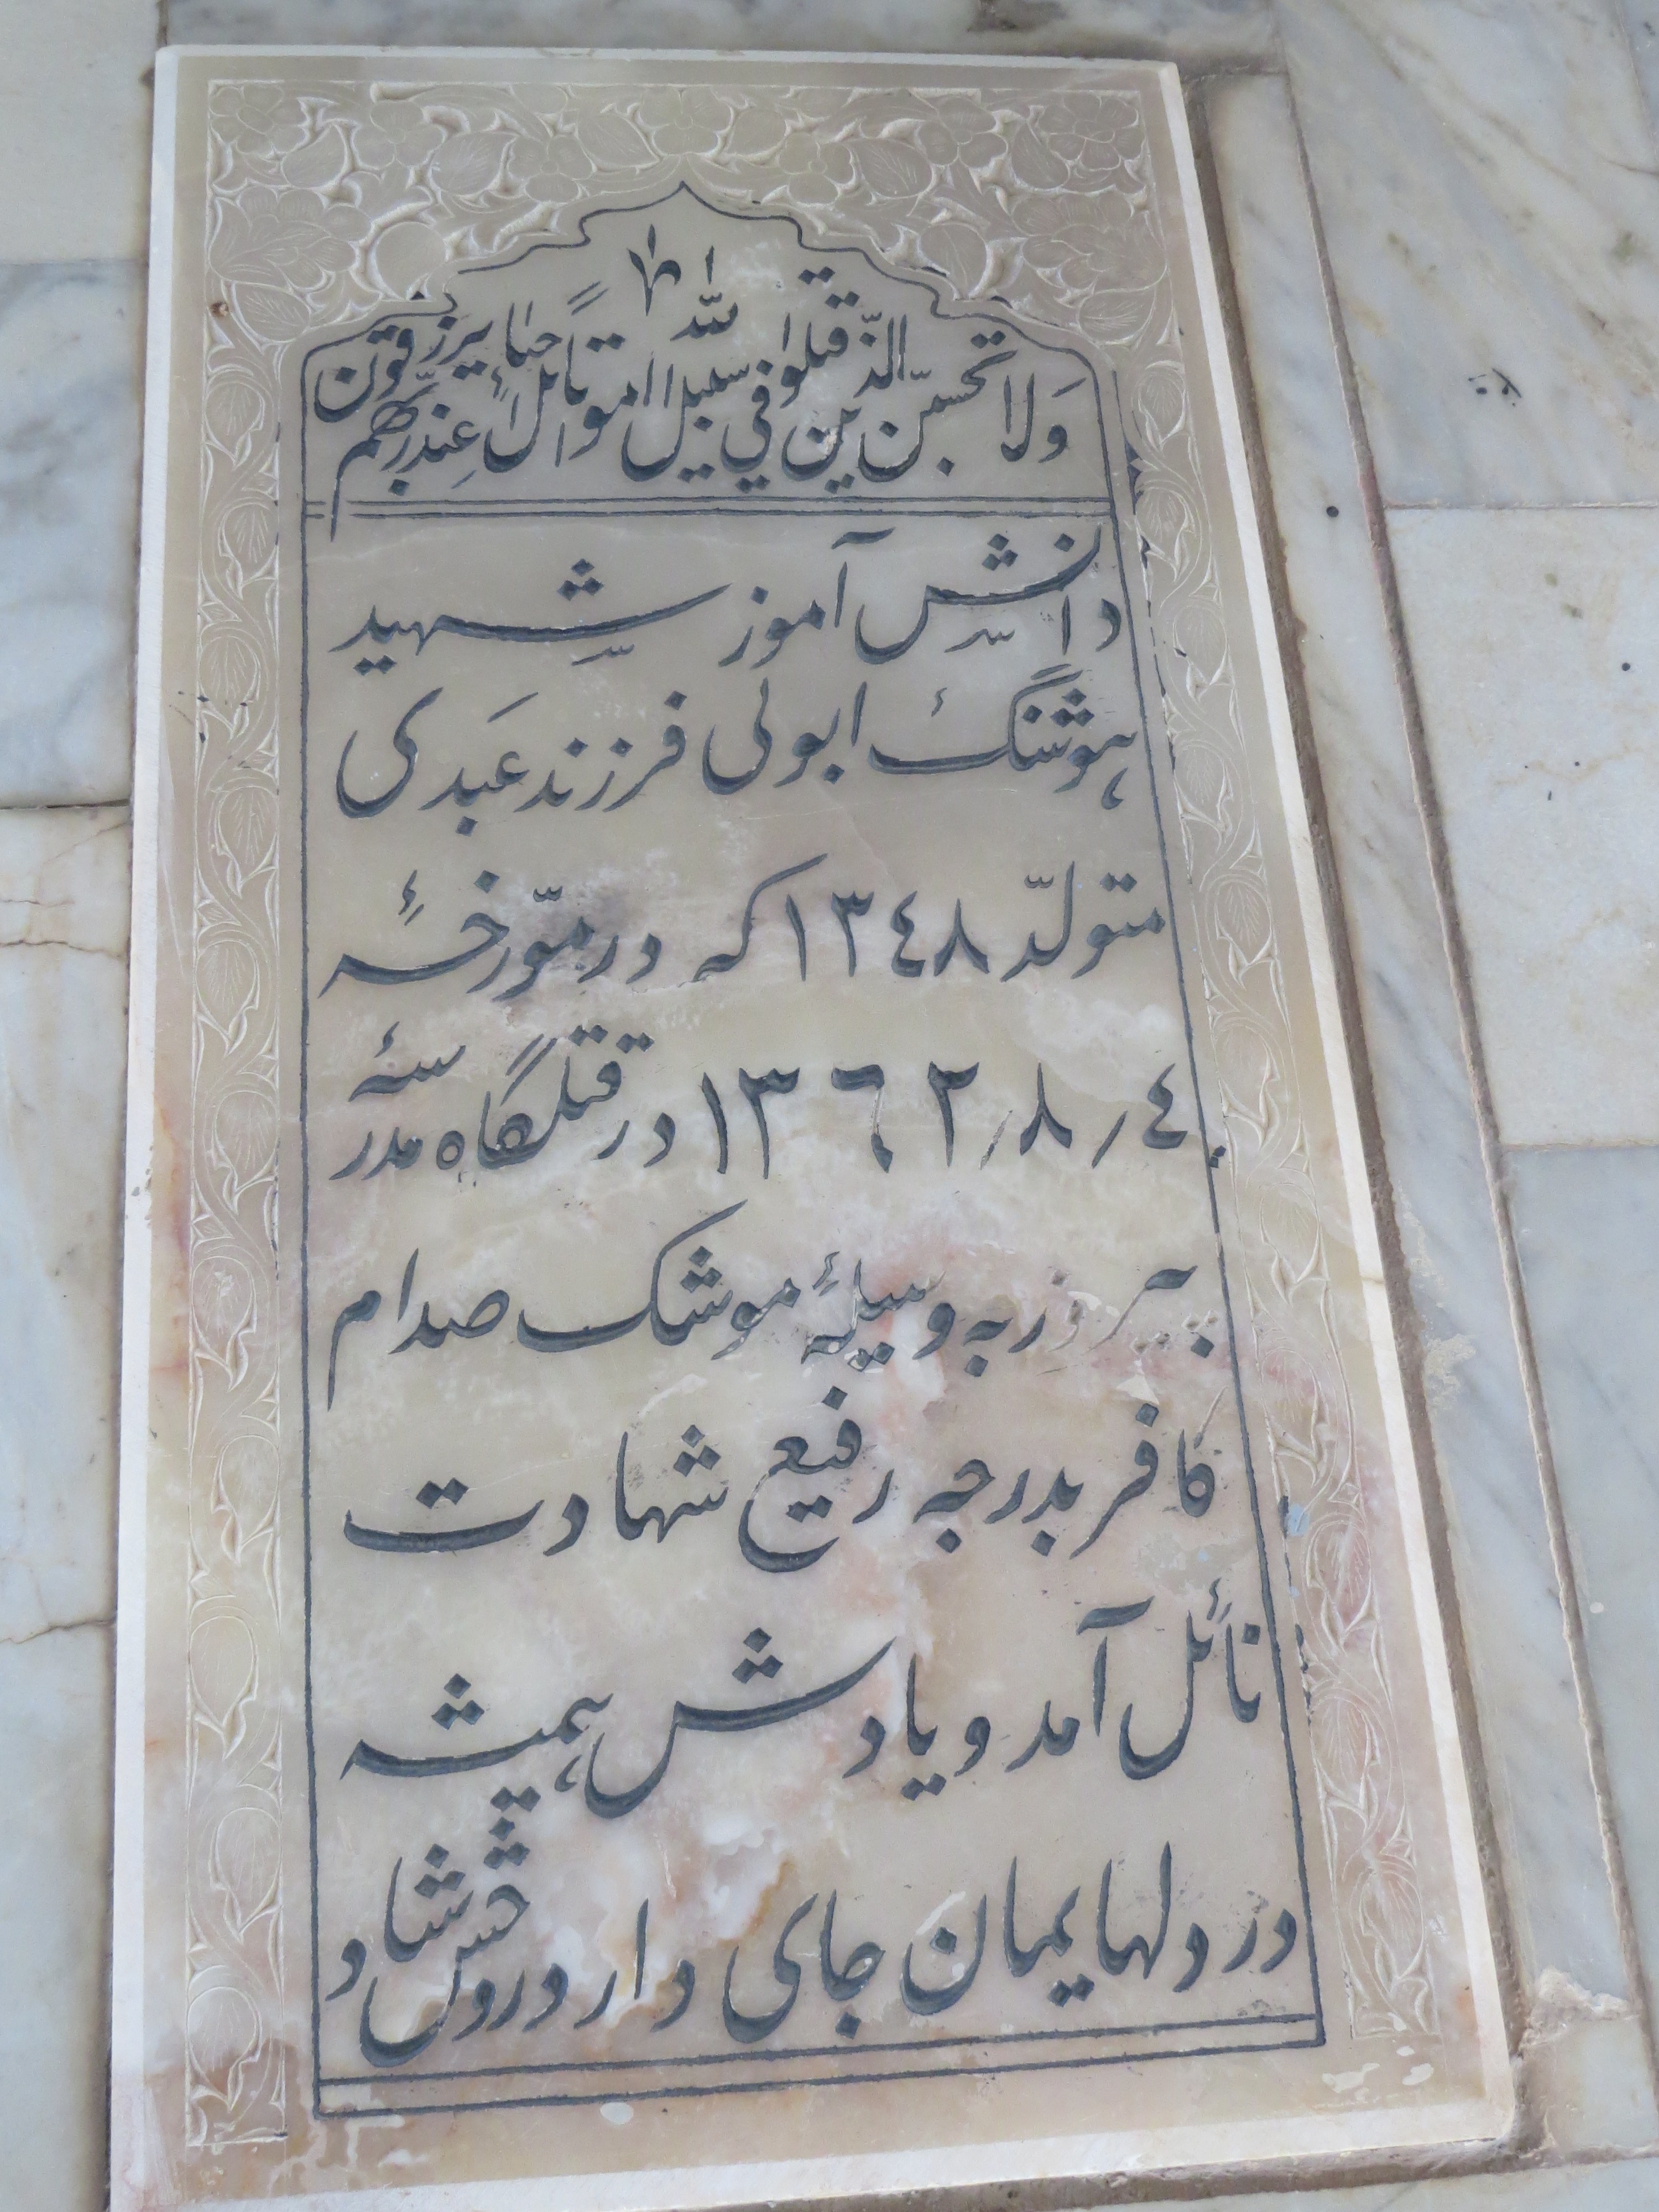 وَلا تحسبنّ الذّين قتلوا في سبيل اللّه امواتاً بل أحياءٌ عِند ربّهم يرزقون
دانش آموز شهید
هوشنگ ابولی فرزند عَبدی
متولّد ١٣٤٨ که در مورّخهٔ
٤/٨/١٣٦٢ در قتلگاه مدرسهٔ
پیروز به وسیلهٔ موشک صدام
کافر بدرجه رفیع شهادت
نائل آمد و یادش همیشه
در دلهایمان جای دارد روحش شاد